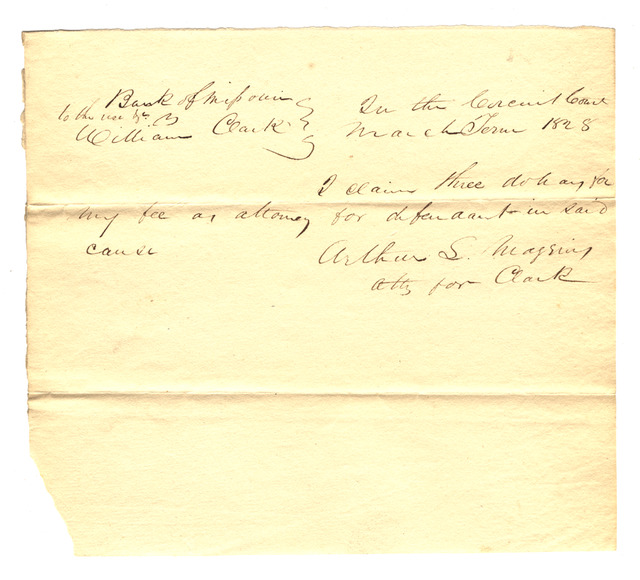 Bank of Missouri
to the use &c vs
William Clark
In the Circuit Court
March Term 1828
I claim three dollars for
my fee as attorney for defendant in said
cause
Arthur L. Magenis
Atty for Clark